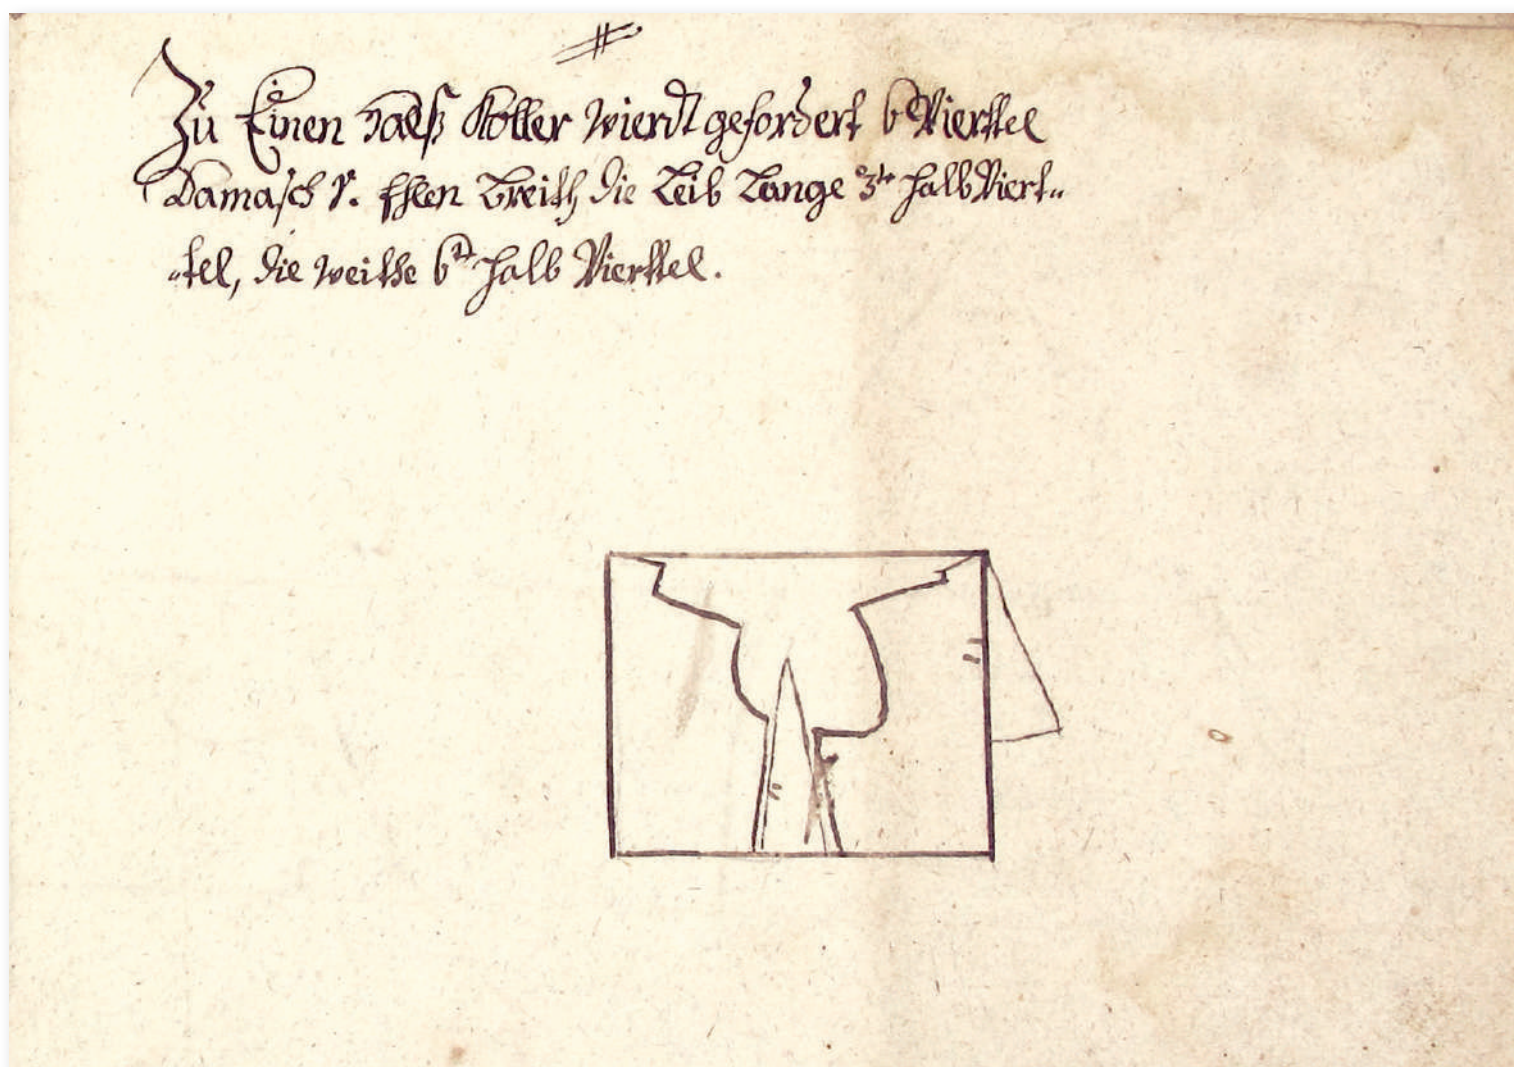 Zu Einen Halß Koller wierdt gefordert 6 Vierttel
Damasch 1. Ehlen breith die Leib Lange 3te halb Viert„
„tel, die weithe 6te halb Vierttel.